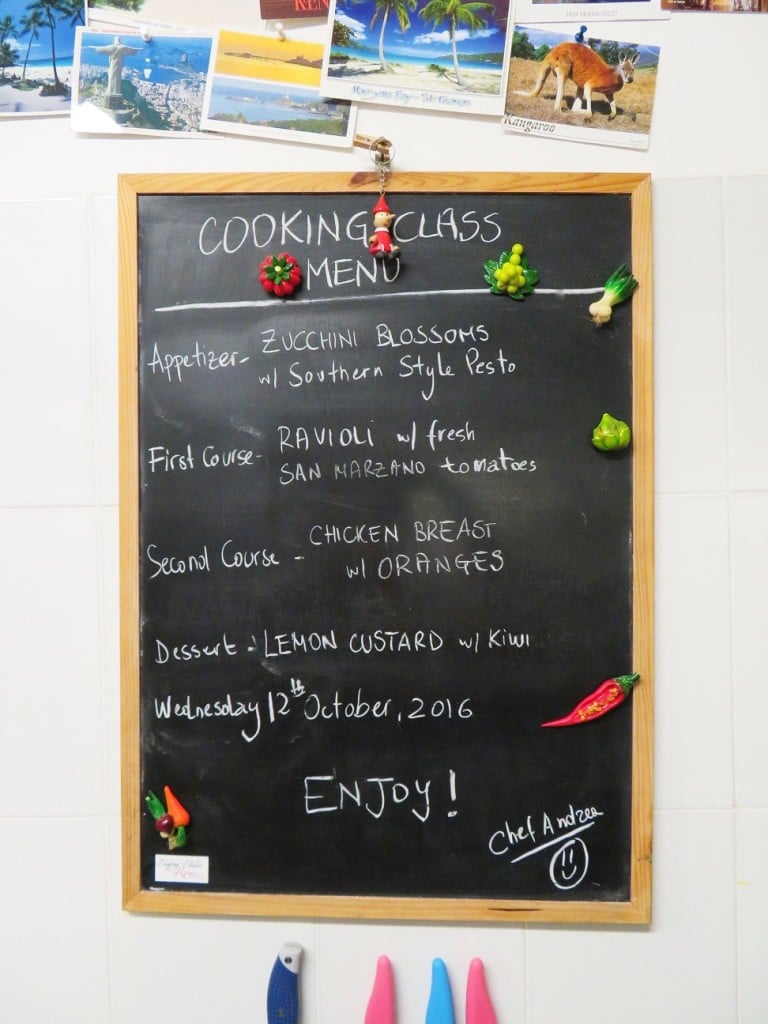 SAN FRANCISCO
Kangaroo
COOKING CLASS
MENU
Appetizer- ZUCCHINI BLOSSOMS
w/ Southern Style Pesto
First Course- RAVIOLI w/ fresh
SAN MARZANO tomatoes
Second Course - CHICKEN BREAST
w/ ORANGES
Dessert - LEMON CUSTARD w/ Kiwi
Wednesday 12th October, 2016
ENJOY!
Chef Andrea